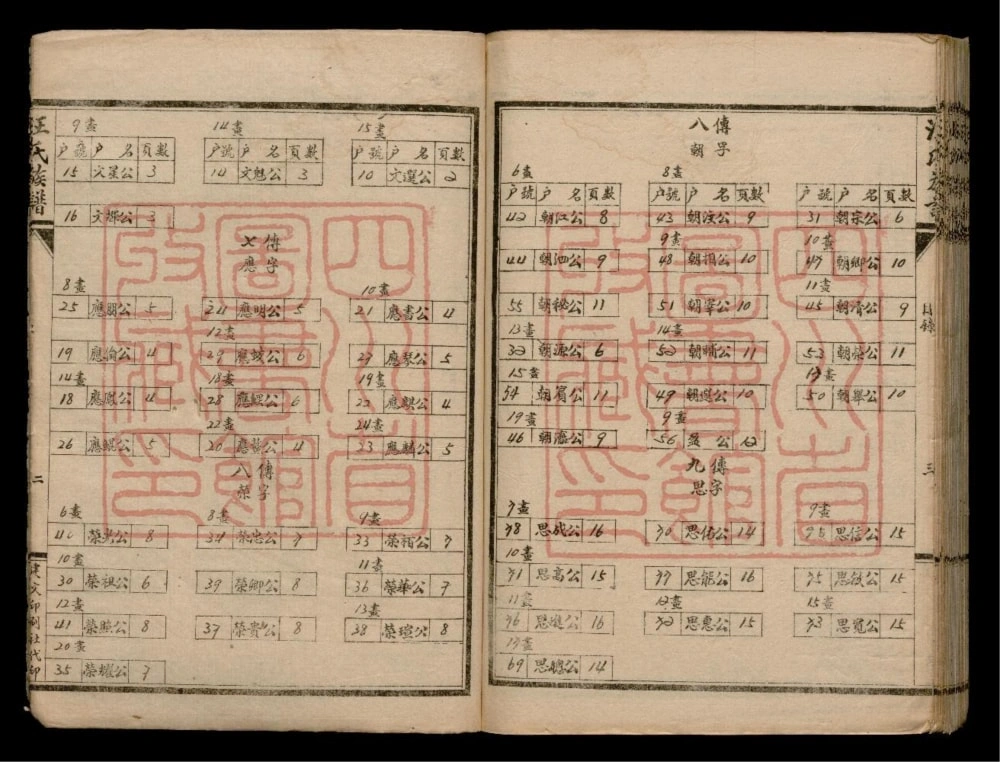 汪氏族譜
9畫 14畫 15畫
户號 户名 頁數 户號 户名 頁數 户號 户名 頁數
15 文星公 3 14 文魁公 3 10 文選公 2
16 文輝公 3
七傳
應字
8畫 10畫
25 應朋公 5 24 應明公 5 21 應書公 4
12畫
19 應倫公 4 29 公 6 27 應琴公 5
14畫 18畫 19畫
18 公 4 28 公 6 22 應麒公 4
22畫 24畫
26 公 5 20 公 4 23 應麟公 5
八傳
榮字
6畫 8畫 9畫
榮公 8 34 榮忠公 7 33 榮栢公 7
10畫 11畫
30 榮祖公 6 39 榮卿公 8 36 榮華公 7
12畫 13畫
41 榮照公 8 37 榮貴公 8 38 榮瑄公 8
20畫
35 榮耀公 7
二
建文印刷社代印
八傳
朝字
6畫 8畫
户號 户名 頁數 户號 户名 頁數 户號 户名 頁數
42 朝江公 8 43 公 9 31 朝宗公 6
9畫 10畫
44 朝泗公 9 48 朝相公 10 47 朝卿公 10
11畫
55 朝秘公 11 51 朝宰公 10 45 朝清公 9
13畫 14畫
32 朝源公 6 52 公 11 53 朝榮公 11
15畫 13畫
54 朝賓公 11 49 公 10 50 朝舉公 10
19畫 9畫
46 公 9 56 公 12
九傳
思字
7畫 9畫
78 思成公 16 70 思佑公 14 思信公 15
10畫
71 思高公 15 77 思能公 16 75 公 15
11畫 12畫 15畫
76 公 16 72 思惠公 15 73 思寬公 15
17畫
69 思聰公 14
目錄
三
四川省圖書館收藏印